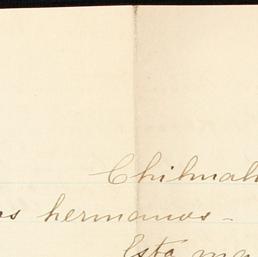 Chihuah
os hermanos -
Esta ma